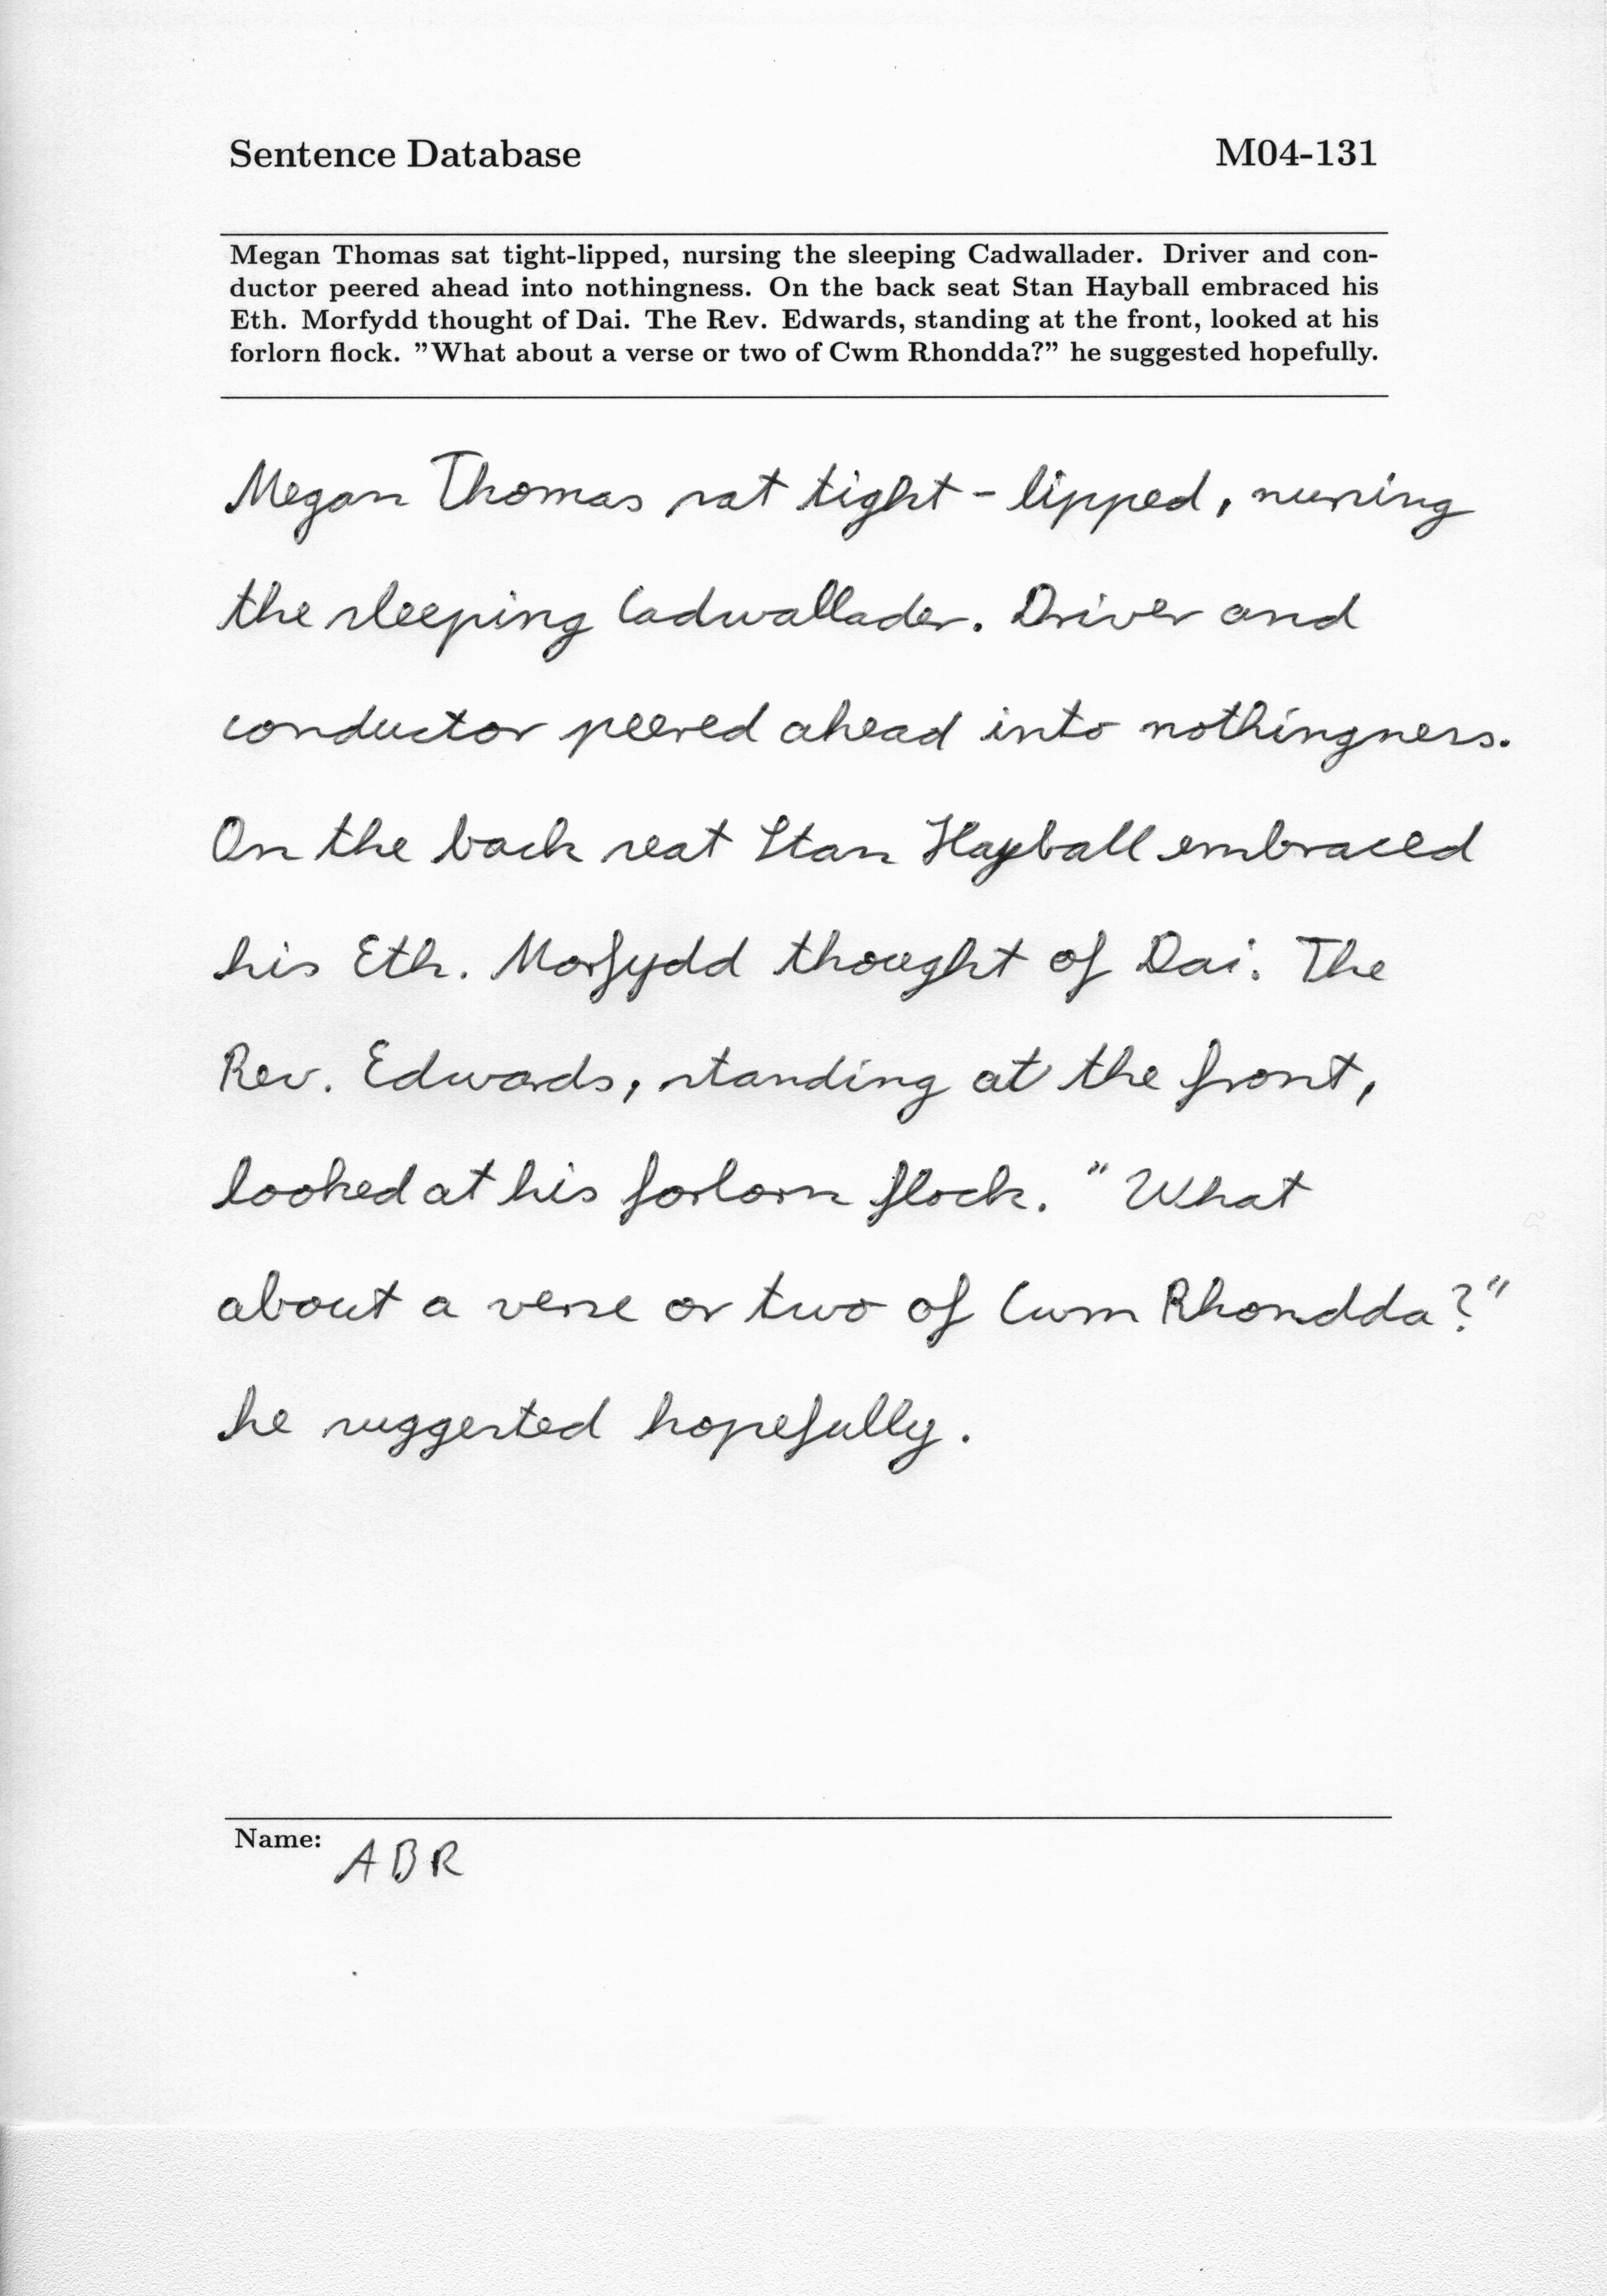 Sentence Database M04-131
Megan Thomas sat tight-lipped, nursing the sleeping Cadwallader. Driver and con-
ductor peered ahead into nothingness. On the back seat Stan Hayball embraced his
Eth. Morfydd thought of Dai. The Rev. Edwards, standing at the front, looked at his
forlorn flock. ”What about a verse or two of Cwm Rhondda?” he suggested hopefully.
Megan Thomas sat tight-lipped, nursing
the sleeping Cadwallader. Driver and
conductor peered ahead into nothingness.
On the back seat Stan Hayball embraced
his Eth. Morfydd thought of Dai. The
Rev. Edwards, standing at the front,
looked at his forlorn flock. "What
about a verse or two of Cwm Rhondda?"
he suggested hopefully.
Name: ABR